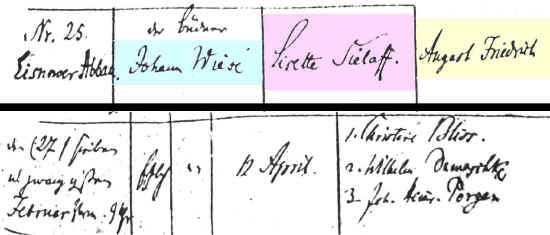 Nr. 25. der Büdner
Eisnower Abbau. Johann Wiese Lisette Sielaff. August Friedrich
den (27) sieben
und zwanzigsten
Februar 9 Uhr 12 April.
1. Christine Bliss.
2. Wilhelm Damaschke
3. Joh. Heinr. Porgen